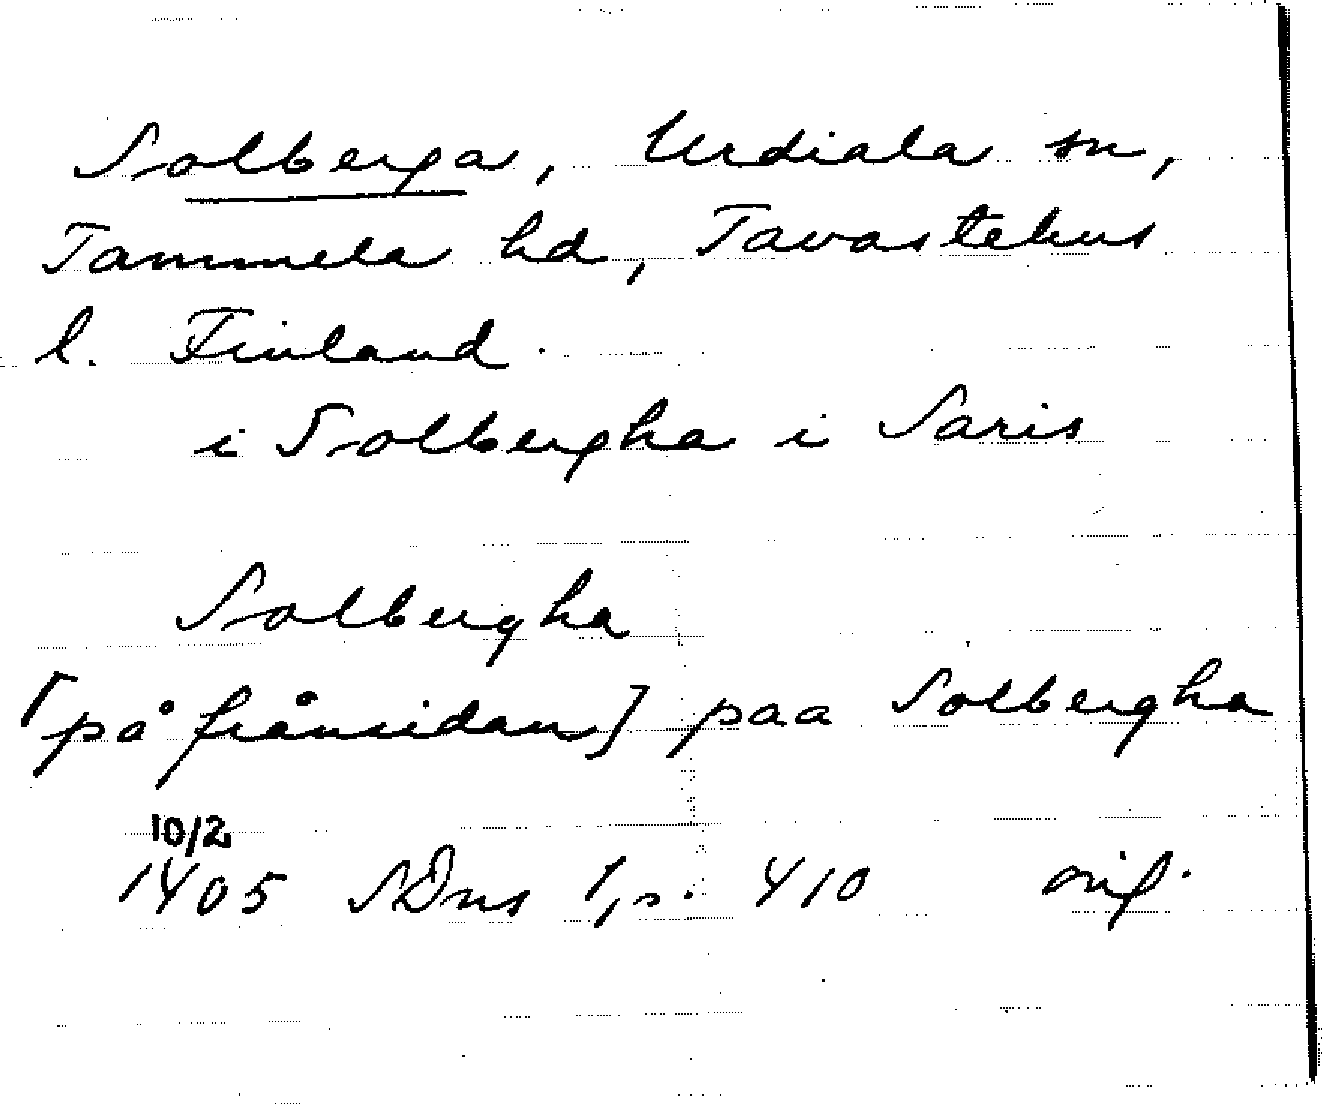 Solberga, Urdiala sn,
Tammela hd, Tavastehus
l. Finland.
i Solbergha i Saris
Solbergha
[på frånsidan] paa Solbergha
10/2
1405 SDns 1, s. 410 orig.